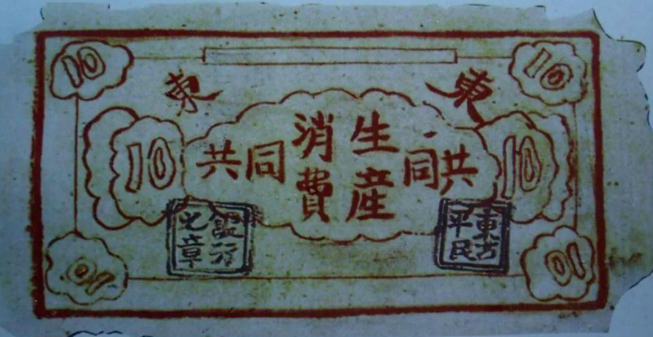 10
10
東
東
10
10
共同
生産
共同
消費
東古平民
銀行之章
10
10